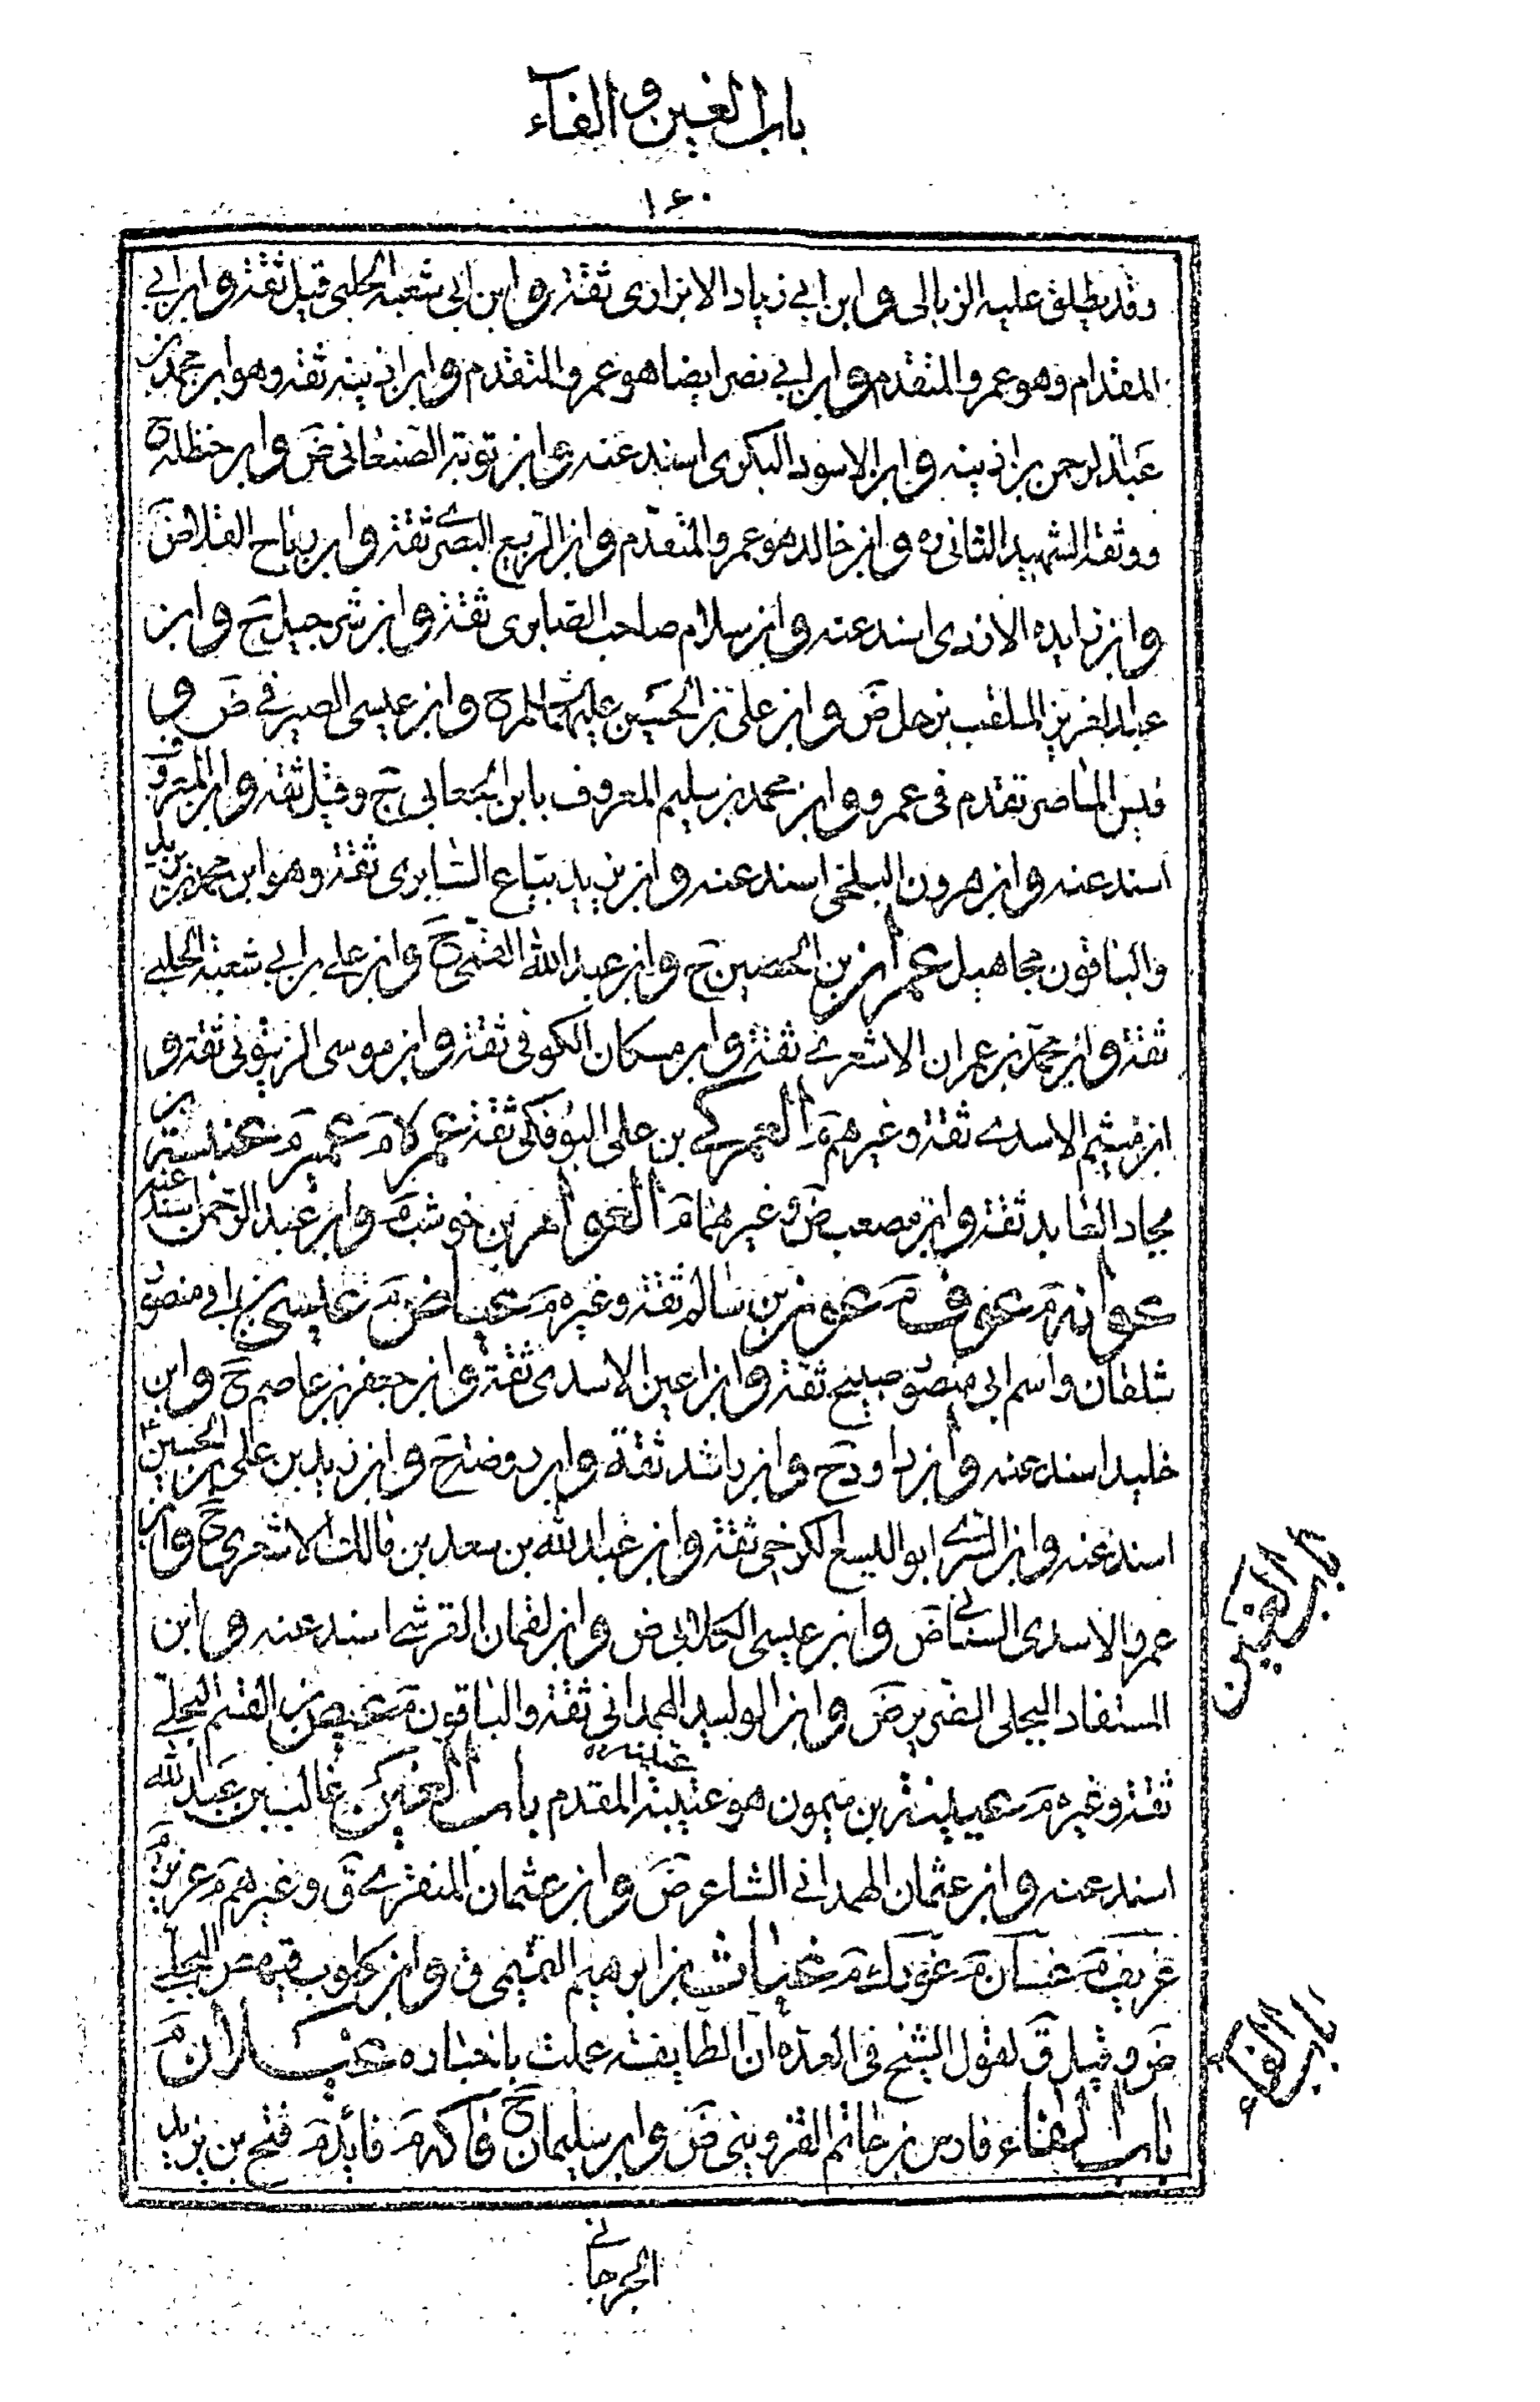 باب الغین و الفآء
۱۶۰
وقد یطلق علیه الزبالی وابن ابی زیاد الابزاری ثقة وابن ابی شعبه الحلبی قیل ثقة وابن ابی
المقدام وهو عمرو المتقدم وابن ابی نصر ایضا هو عمرو المتقدم وابن اذینه ثقه وهو ابن محمد بن
عبد الرحمن بن اذینه وابن الاسود البکری اسند عنه وابن توبة الصنعانی ض وابن حنظله ح
ووثقه الشهید الثانی ره وابن خالد هو عمرو المتقدم وابن الربیع البصری ثقة وابن ریاح القلا ض
وابن زایده الازدی اسند عنه وابن سلام صاحب الصابری ثقة وابن شرحبیل ح وابن
عبد العزیز الملقب بزحل ض وابن علی بن الحسین علیهما السلام ح وابن عیسی الصیرفی ض و
قیس الماصر تقدم فی عمرو وابن محمد بن سلیم المعروف بابن الجعابی ح وقیل ثقة وابن
اسند عنه وابن هرون البلخی اسند عنه وابن یزید بیاع السابری ثقة وهو ابن محمد بن یزید
والباقون مجاهیل عمران بن الحصین ح وابن عبد الله القمی ح وابن علی بن ابی شعبة الحلبی
ثقة وابن محمد بن عمران الاشعری ثقة وابن مسکان الکوفی ثقة وابن موسی الزیتونی ثقة و
ابن میثم الاسدی ثقة وغیرهم م العمرکی بن علی البوفکی ثقة م عمیر م عنبسة بن
بجاد العابد ثقة وابن مصعب ض وغیرهما م العوام بن حوشب م وابن عبد الرحمن اسند عنه
عوانه م عوف م عون بن سالم ثقة وغیره م عیاض م عیسی بن ابی منصور
شلقان واسم ابی منصور صبیح ثقة وابن اعین الاسدی ثقة وابن جعفر بن عاصم ح وابن
خلید اسند عنه وابن داود ح وابن راشد ثقة وابن روضة ح وابن زید بن علی بن الحسین ع
اسند عنه وابن السری ابو الیسع الکرخی ثقة وابن عبد الله بن سعد بن مالک الاشعری ح وابن
عمرو الاسدی السنانی ض وابن عیسی الکلابی ض وابن لقمان القرشی اسند عنه وابن
المستفاد البجلی الضریر ض وابن الولید الهمدانی ثقة والباقون م عیص بن القسم البجلی
ثقة وغیره م عیینة بن میمون هو عتیبة المقدم باب الغین غالب بن عبد الله
اسند عنه وابن عثمان الهمدانی الشاعر ض وابن عثمان المنقری ق وغیرهم م
غریف م غسان م م غیاث بن ابرهیم التمیمی ق وابن کلوب بن قیهس البجلی
ض وقیل ق لقول الشیخ فی العده ان الطایفة عملت باخباره غیلان م
باب الفاء فارس بن حاتم القزوینی ض وابن سلیمان ح فاکه م فائد م فتح بن یزید
الجرجانی
باب الغین
باب الفاء